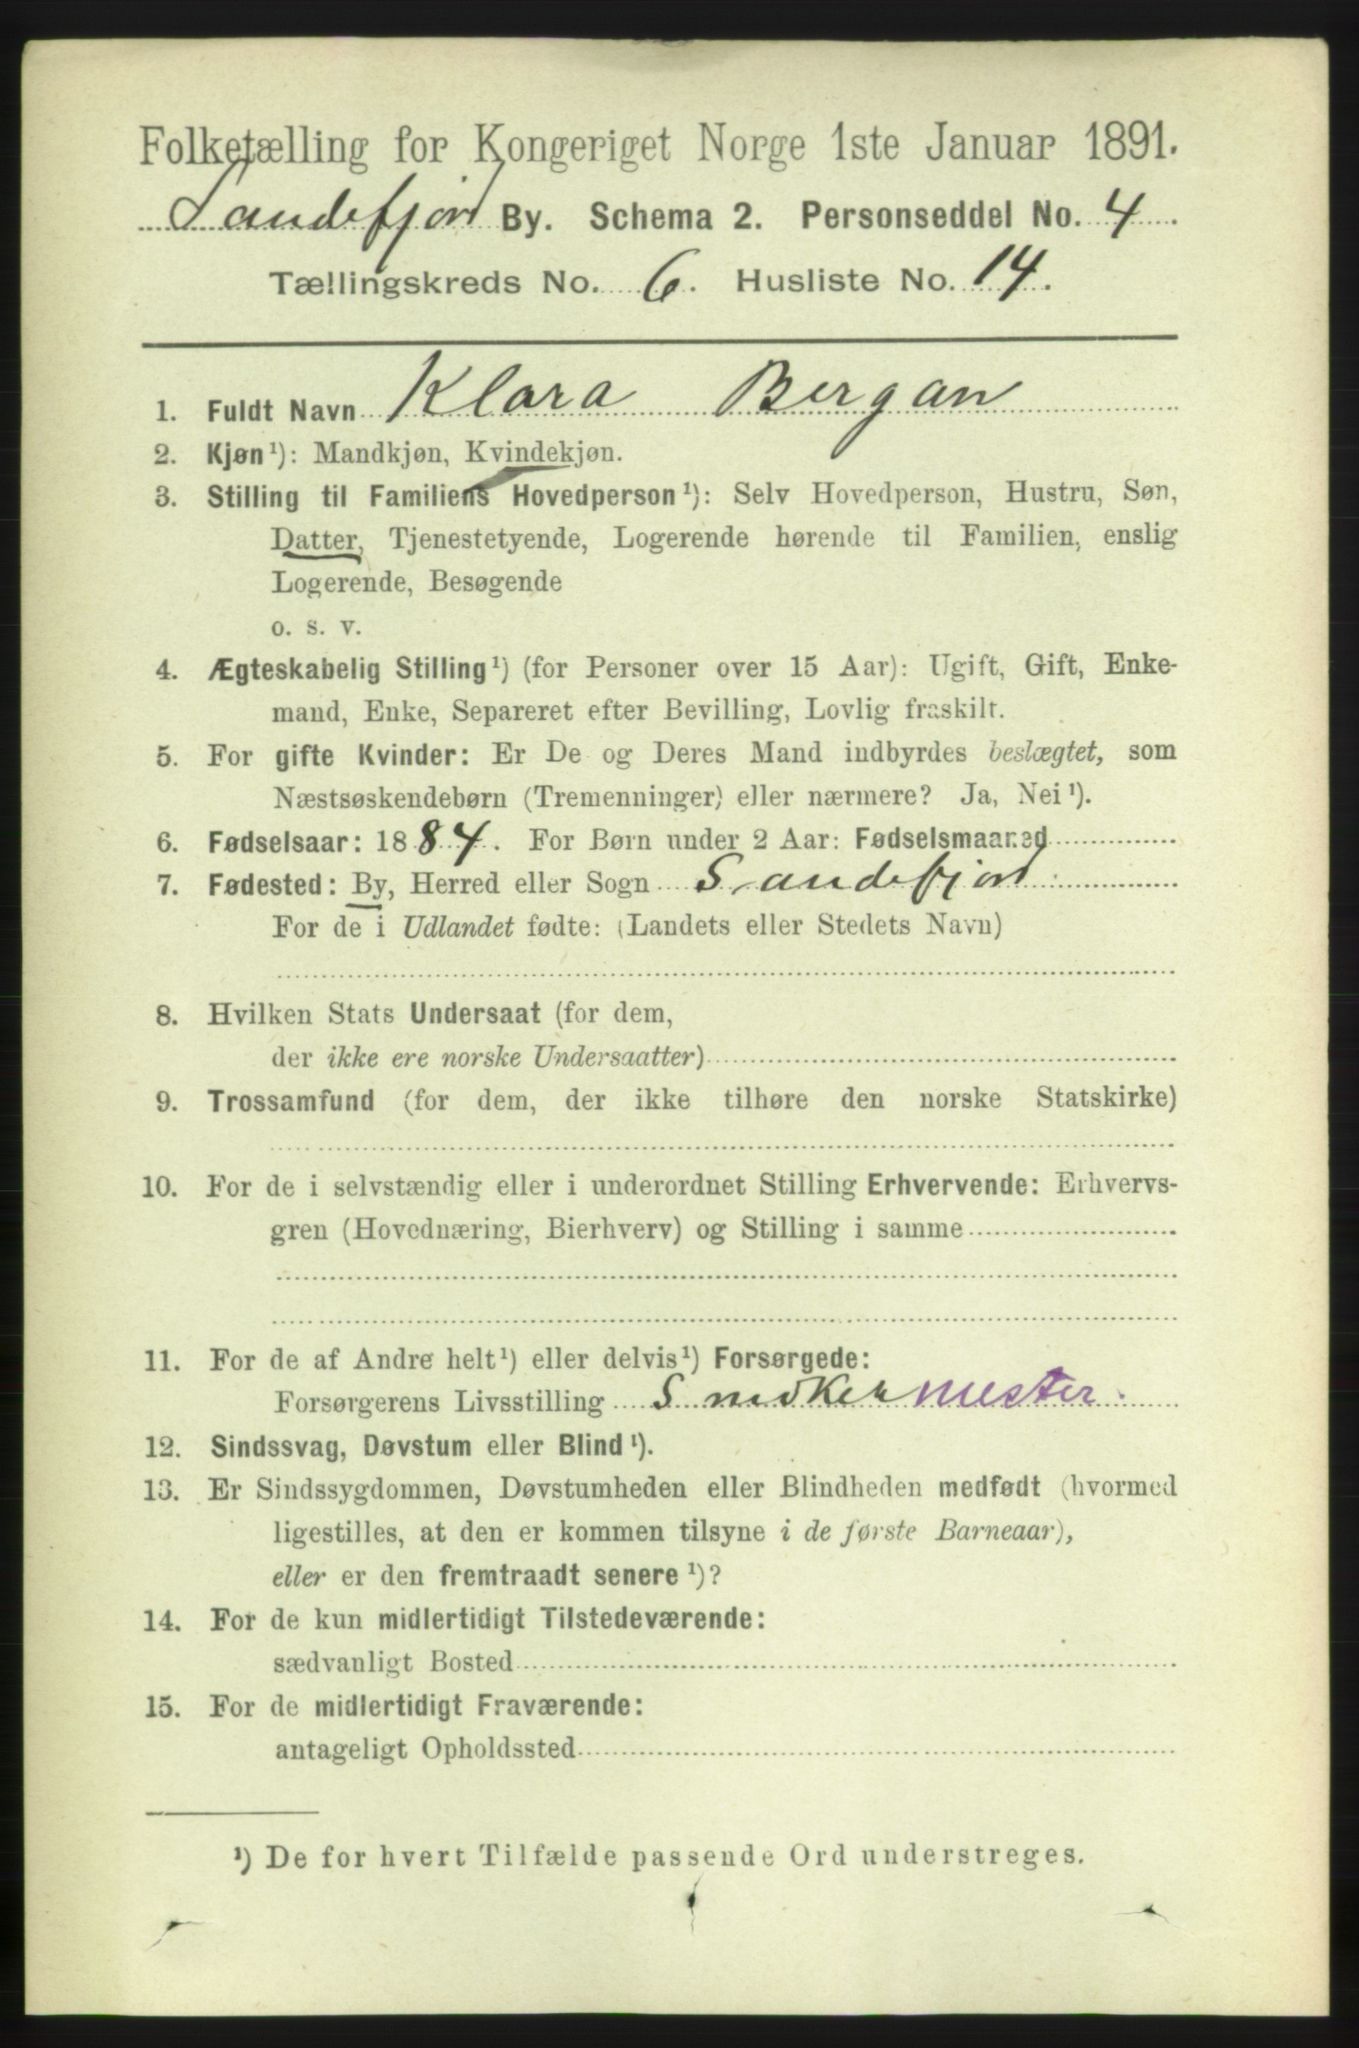 Folketælling for Kongeriget Norge 1ste Januar 1891.
Sandefjord By. Schema 2. Personseddel No. 4.
Tællingskreds No. 6. Husliste No. 14.
1. Fuldt Navn Klara Bergan
2. Kjøn¹): Mandkjøn, Kvindekjøn.
3. Stilling til Familiens Hovedperson¹): Selv Hovedperson, Hustru, Søn,
Datter, Tjenestetyende, Logerende hørende til Familien, enslig
Logerende, Besøgende
o. s. v.
4. Ægteskabelig Stilling¹) (for Personer over 15 Aar): Ugift, Gift, Enke-
mand, Enke, Separeret efter Bevilling, Lovlig fraskilt.
5. For gifte Kvinder: Er De og Deres Mand indbyrdes beslægtet, som
Næstsøskendebørn (Tremenninger) eller nærmere? Ja, Nei¹).
6. Fødselsaar: 1884. For Børn under 2 Aar: Fødselsmaaned
7. Fødested: By, Herred eller Sogn Sandefjord
For de i Udlandet fødte: (Landets eller Stedets Navn)
8. Hvilken Stats Undersaat (for dem,
der ikke ere norske Undersaatter)
9. Trossamfund (for dem, der ikke tilhøre den norske Statskirke)
10. For de i selvstændig eller i underordnet Stilling Erhvervende: Erhvervs-
gren (Hovednæring, Bierhverv) og Stilling i samme
11. For de af Andre helt¹) eller delvis¹) Forsørgede:
Forsørgerens Livsstilling Snedkermester.
12. Sindssvag, Døvstum eller Blind¹).
13. Er Sindssygdommen, Døvstumheden eller Blindheden medfødt (hvormed
ligestilles, at den er kommen tilsyne i de første Barneaar),
eller er den fremtraadt senere¹)?
14. For de kun midlertidigt Tilstedeværende:
sædvanligt Bosted
15. For de midlertidigt Fraværende:
antageligt Opholdssted
¹) De for hvert Tilfælde passende Ord understreges.